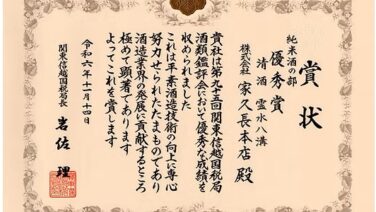 賞状
純米酒の部
優秀賞
清酒 霊水八溝
株式会社 家久長本店 殿
貴社は第九十五回関東信越国税局
酒類鑑評会において優秀な成績を
収められました
これは平素酒造技術の向上に専心
努力せられたたまものであり
酒造業界の発展に貢献するところ
極めて顕著であります
よってこれを賞します
令和六年十一月十四日
関東信越国税局長
岩佐 理